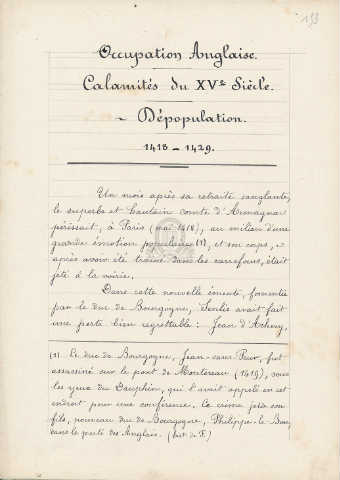 193
Occupation Anglaise.
Calamités du XVe Siècle.
~ Dépopulation.
1418 - 1429.
Un mois après sa retraite sanglante,
le superbe et hautain comte d'Armagnac
périssait, à Paris (mai 1418), au milieu d'une
grande émotion populaire (1), et son corps,
après avoir été traîné dans les carrefours, était
jeté à la voirie.
Dans cette nouvelle émeute, fomentée
par le duc de Bourgogne, Senlis avait fait
une perte bien regrettable : Jean d'Achery,
(1) Le duc de Bourgogne, Jean-sans-Peur, fut
assassiné sur le pont de Montereau (1419), sous
les yeux du Dauphin, qui l'avait appelé en cet
endroit pour une conférence. Ce crime jeta son
fils, nouveau duc de Bourgogne, Philippe-le-Bon,
dans le parti des Anglais. (hist de F.)